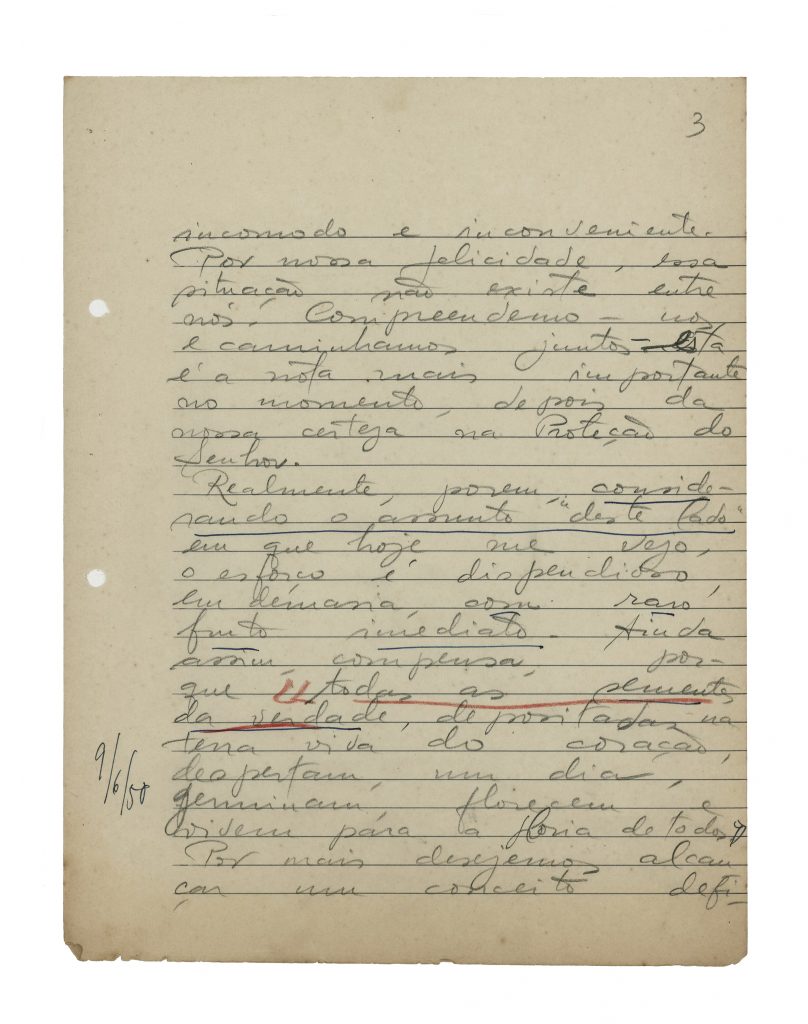 3
incomodo e inconveniente.
Por nossa felicidade, essa
situação não existe entre
nós. Compreendemo-nos
e caminhamos juntos - esta
é a nota mais importante
no momento, depois da
nossa certeza na Proteção do
Senhor.
Realmente, porem, conside-
rando o assunto "deste lado"
em que hoje me vejo,
o esforço é dispendioso,
em demasia, com raro
fruto imediato. Ainda
assim, compensa, por-
que "todas as sementes
da verdade, depositadas na
terra viva do coração,
despertam, um dia,
9/6/58
germinam, florecem e
vivem para a gloria de todos"
Por mais desejemos alcan
çar um conceito defi-